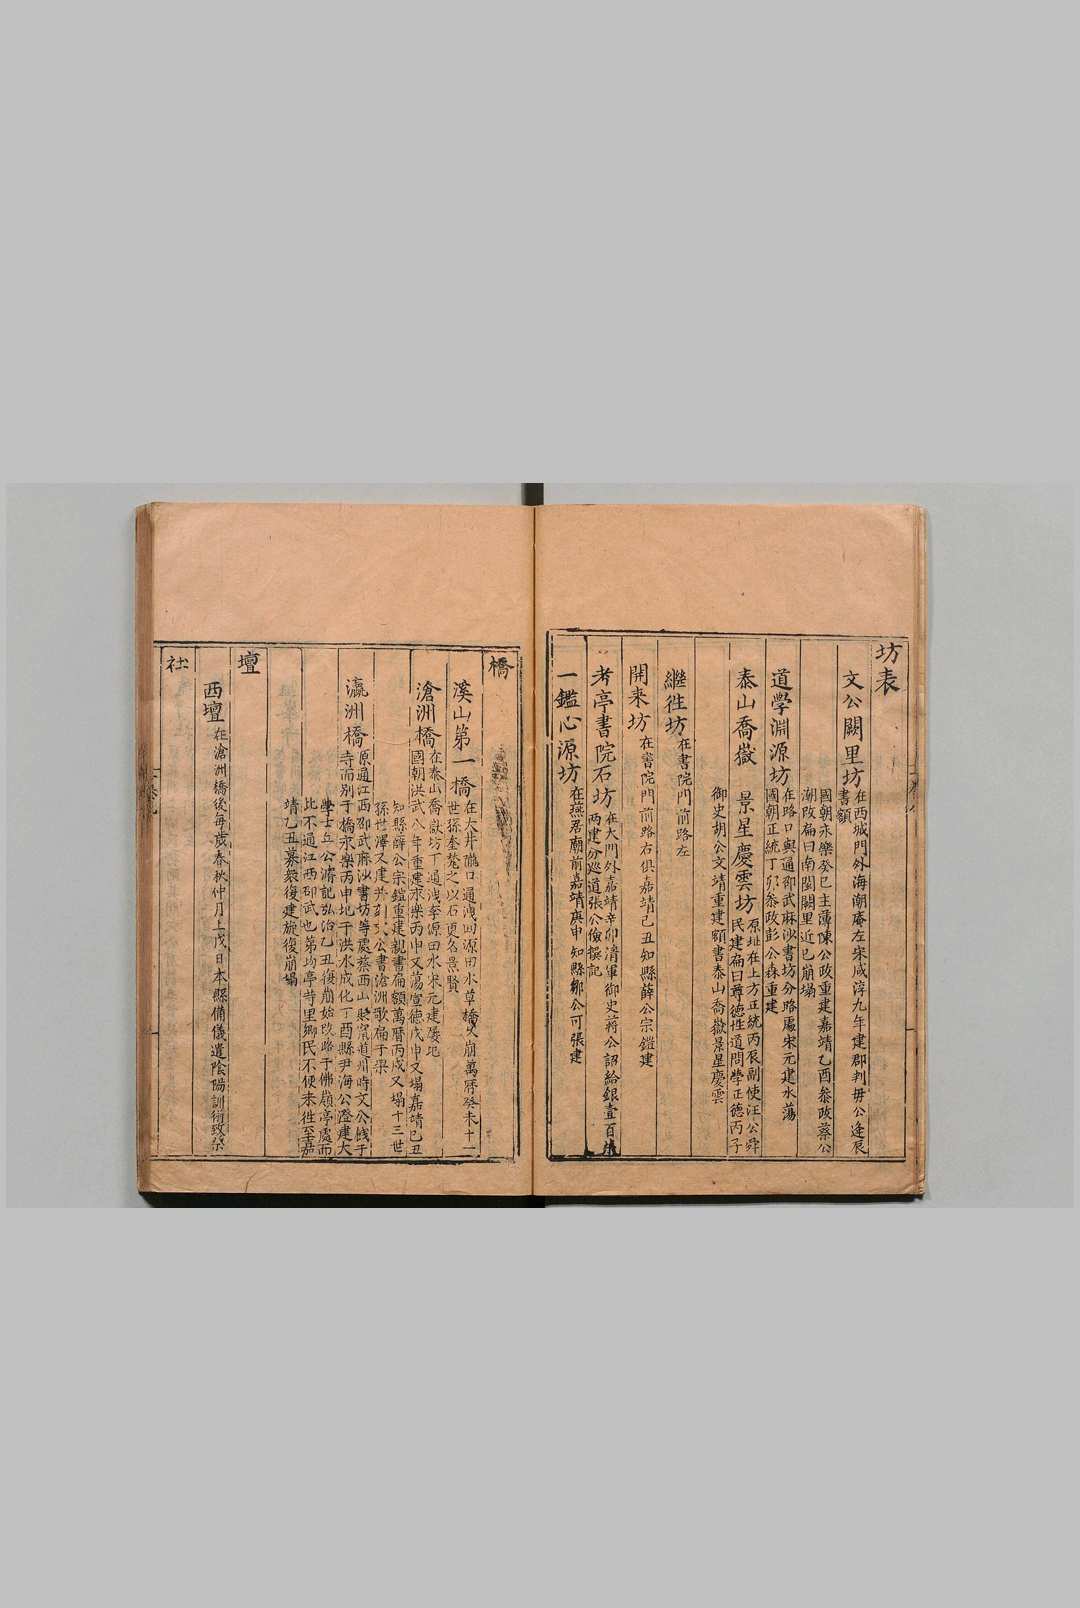 坊表
文公闕里坊 在西城門外海潮庵左宋咸淳九年建郡判毋公逢辰
書額
國朝永樂癸巳主薄陳公政重建嘉靖乙酉叅政蔡公
潮改扁曰南閩闕里近已崩塌
道學淵源坊 在路口與通邵武麻沙書坊分路處宋元建水蕩
國朝正統丁卯叅政彭公森重建
泰山喬嶽 景星慶雲坊 原址在上方正統丙辰副使汪公舜
民建扁曰尊德性道問學正德丙子
御史胡公文靖重建額書泰山喬嶽景星慶雲
繼徃坊 在書院門前路左
開来坊 在書院門前路右俱嘉靖己丑知縣薛公宗鎧建
考亭書院石坊 在大門外嘉靖辛卯清軍御史蔣公詔給銀壹百
两建分巡道張公儉撰記
一鑑心源坊 在燕居廟前嘉靖庚申知縣鄒公可張建
橋
溪山第一橋 在大井隴口通洩回源田水草橋久崩萬曆癸未十一
世孫奎楚之以石更名景賢
滄洲橋 在泰山喬嶽坊下通洩李源田水宋元建屡圮
國朝洪武八年重建永樂丙申又蕩宣德戊申又塌嘉靖己丑
知縣薛公宗鎧重建親書扁額萬曆丙戌又塌十三世
孫世澤又建并刻文公書滄洲歌扁于梁
瀛洲橋 原通江西邵武麻沙書坊等處蔡西山貶竄道州時文公餞于
寺而别于橋永樂丙申圮于洪水成化丁酉縣尹海公澄建大
學士丘公濬記弘治乙丑復崩始改路于佛嶺亭處而
比不通江西邵武也第均亭寺里鄉民不便来徃至嘉
靖乙丑募衆復建旋復崩塌
壇
西壇 在滄洲橋後每歲春秋仲月上戊日本縣備儀遣陰陽訓術致祭
社